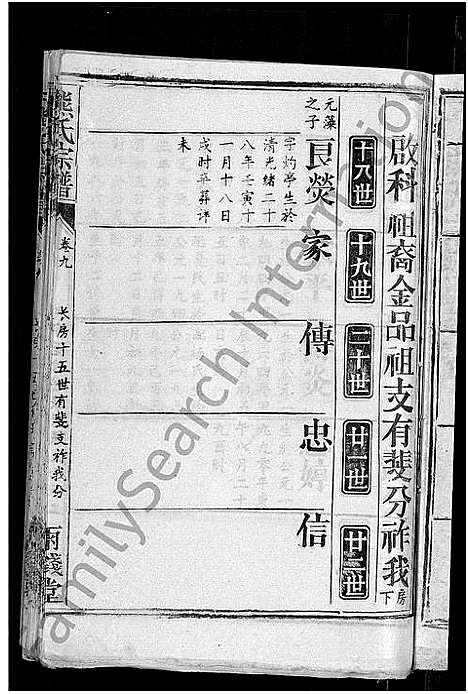 啟科祖裔金品祖支有斐分祚我房下
十八世
十九世
二十世
廿一世
廿二世
元藻之子
良熒
家
傳
忠
信
字灼亭生於
清光緒二十
八年壬寅十
一月十八日
戌時卒葬詳
未
熊氏宗譜
卷九
长房十五世有斐支祚我分
FamilySearch International